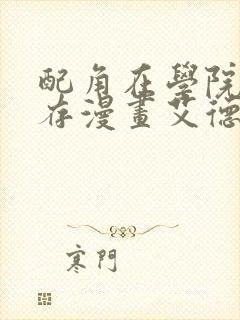 配角在學院
存漫畫艾德
寒門